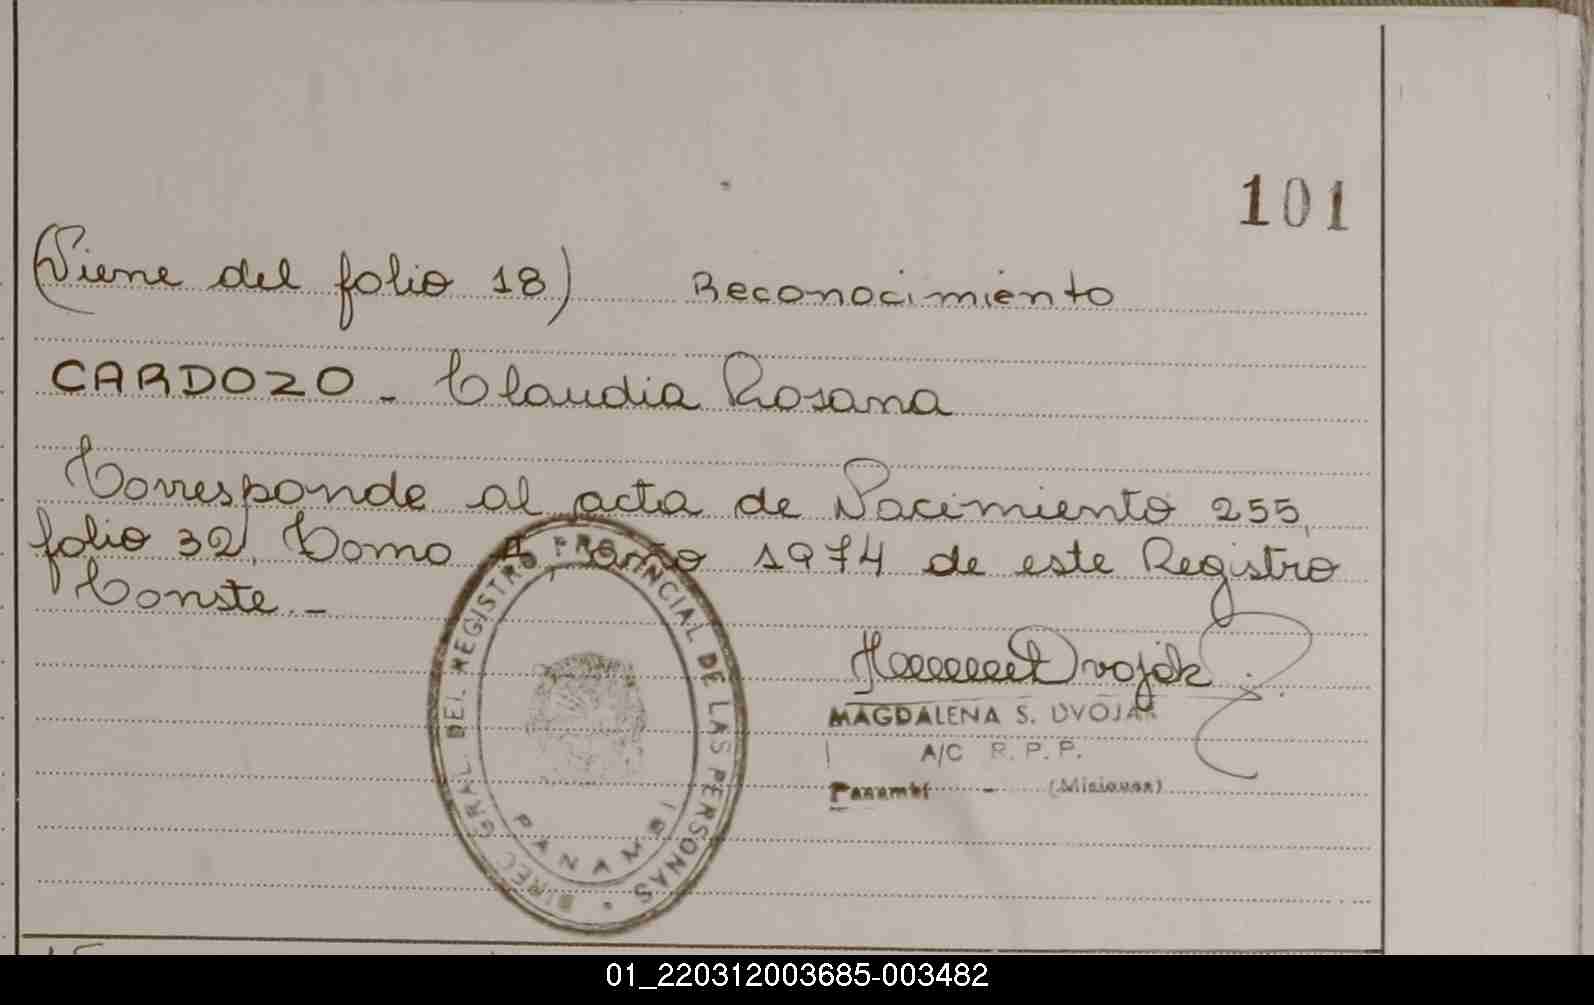 101
(Viene del folio 18) Reconocimiento
CARDOZO - Claudia Rosana
Corresponde al acta de Nacimiento 255,
folio 32, Tomo A, año 1974 de este Registro
Conste. -
DIREC. GRAL. DEL REGISTRO PROVINCIAL DE LAS PERSONAS
PANAMBI
Dvojak
MAGDALENA S. DVOJAK
A/C R. P. P.
Panambí - (Misiones)
01_220312003685-003482